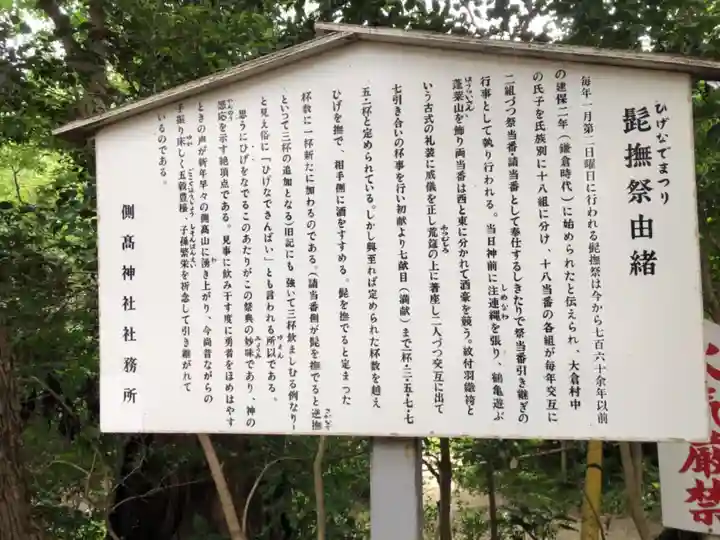 髭撫祭由緒
ひげなでまつり
毎年一月第二日曜日に行われる髭撫祭は今から七百六十余年以前
の建保二年(鎌倉時代)に始められたと伝えられ、大倉村中
の氏子を氏族別に十八組に分け、十八当番の各組が毎年交互に
二組づつ祭当番請当番として奉仕するしきたりで祭当番引き継ぎの
行事として執り行われる。当日神前に注連縄を張り、鶴亀遊ぶ
しめなわ
蓬莱山を飾り両当番は西と東に分かれて酒豪を競う。紋付羽織袴と
ほうらいさん
いう古式の礼装に威儀を正し荒筵の上に著座し二人づつ交互に出て
あらむしろ
七引き合いの杯事を行い初献より七献目(満献)まで一杯・三・五・七・七
五・三杯と定められている。しかし興至れば定められた杯数を越え
ひげを撫で、相手側に酒をすすめる。髭を撫でると定まった
杯数に一杯新たに加わるのである。(請当番側が髭を撫でると逆撫
といって三杯の追加となる)旧記にも 強いて三杯飲ましむる例なり─
と見え俗に「ひげなでさんばい」とも言われる所以である。
ゆえん
思うにひげをなでるこのあたりがこの祭典の妙味であり、神の
みょうみ
感応を示す絶頂点である。見事に飲み干す度に勇者をほめはやす
かんのう
ときの声が新年早々の側高山に湧き上がり、今尚昔ながらの
わ
手振り床しく五穀豊穣、子孫繁栄を祈念して引き継がれて
ごこくほうじょう しそんはんえい
いるのである。
側髙神社社務所
厳禁